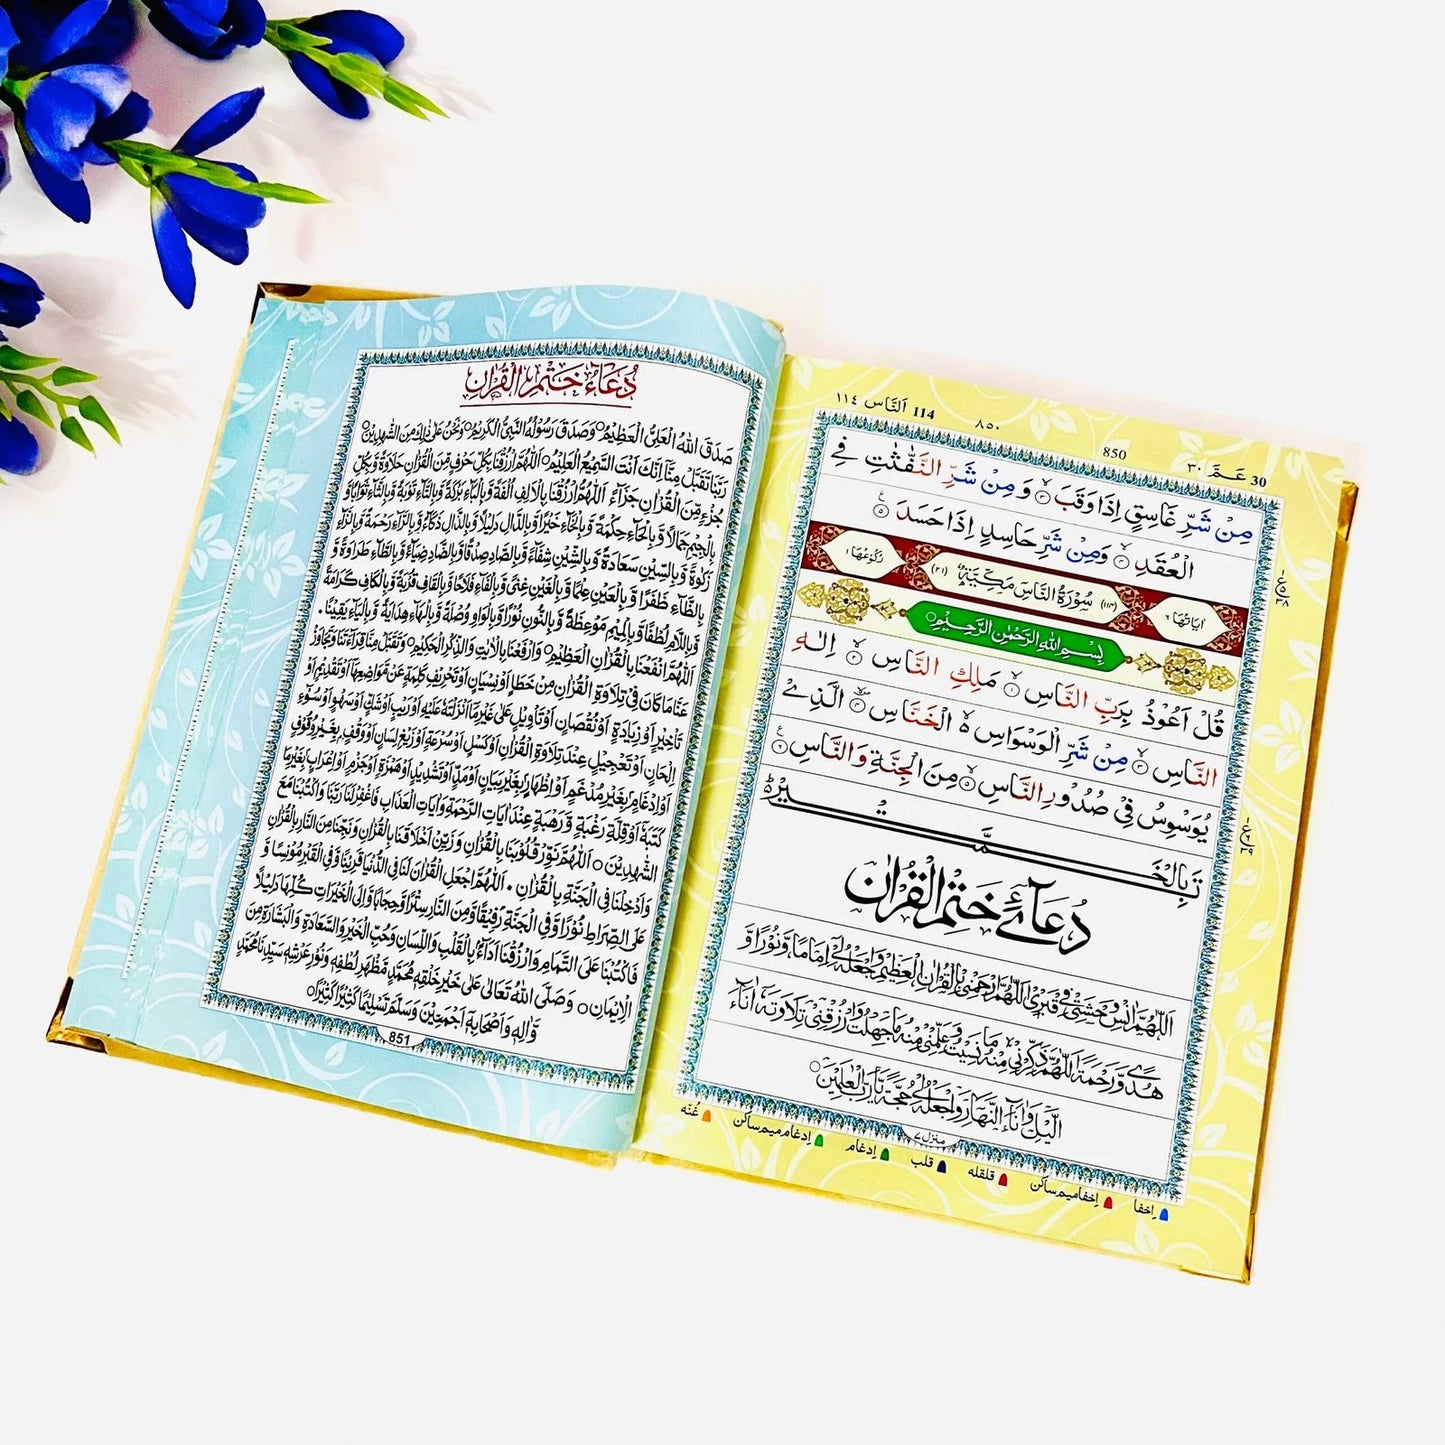 114 اَلنَّاس ١١٤
٨٥٠
850
30 عَـمَّ ٣٠
مِنْ شَرِّ غَاسِقٍ اِذَا وَقَبَ ۙ﴿۳﴾ وَ مِنْ شَرِّ النَّفّٰثٰتِ فِي
الْعُقَدِ ۙ﴿۴﴾ وَمِنْ شَرِّ حَاسِدٍ اِذَا حَسَدَ ﴿۵﴾
اٰيَاتُهَا ٦ سُوْرَةُ النَّاسِ مَكِّيَّةٌ رُكُوْعُهَا ١
بِسْمِ اللّٰهِ الرَّحْمٰنِ الرَّحِيْمِ
قُلْ اَعُوْذُ بِرَبِّ النَّاسِ ۙ﴿۱﴾ مَلِكِ النَّاسِ ۙ﴿۲﴾ اِلٰهِ
النَّاسِ ۙ﴿۳﴾ مِنْ شَرِّ الْوَسْوَاسِ ۙ الْخَنَّاسِ ﴿۴﴾ الَّذِيْ
يُوَسْوِسُ فِيْ صُدُوْرِ النَّاسِ ۙ﴿۵﴾ مِنَ الْجِنَّةِ وَالنَّاسِ ﴿۶﴾
تَمَّتْ بِالْخَيْر
دُعَآئے خَتْمِ الْقُرْاٰن
اَللّٰهُمَّ اٰنِسْ وَحْشَتِيْ فِيْ قَبْرِيْ اَللّٰهُمَّ ارْحَمْنِيْ بِالْقُرْاٰنِ الْعَظِيْمِ وَاجْعَلْهُ لِيْ اِمَامًا وَّنُوْرًا وَّ
هُدًى وَّرَحْمَةً اَللّٰهُمَّ ذَكِّرْنِيْ مِنْهُ مَا نَسِيْتُ وَعَلِّمْنِيْ مِنْهُ مَا جَهِلْتُ وَارْزُقْنِيْ تِلَاوَتَهٗ اٰنَآءَ
الَّيْلِ وَاٰنَآءَ النَّهَارِ وَاجْعَلْهُ لِيْ حُجَّةً يَّا رَبَّ الْعٰلَمِيْنَ
منزل ٧
اِخفا اِخفامیم ساکن قلقلہ قلب اِدغام اِدغام میم ساکن غُنّه
دُعَآءُ خَتْمِ الْقُرْاٰنِ
صَدَقَ اللّٰهُ الْعَلِيُّ الْعَظِيْمُ وَصَدَقَ رَسُوْلُهُ النَّبِيُّ الْكَرِيْمُ وَنَحْنُ عَلٰى ذٰلِكَ مِنَ الشّٰهِدِيْنَ
رَبَّنَا تَقَبَّلْ مِنَّا اِنَّكَ اَنْتَ السَّمِيْعُ الْعَلِيْمُ اَللّٰهُمَّ ارْزُقْنَا بِكُلِّ حَرْفٍ مِّنَ الْقُرْاٰنِ حَلَاوَةً وَّبِكُلِّ
جُزْءٍ مِّنَ الْقُرْاٰنِ جَزَآءً اَللّٰهُمَّ ارْزُقْنَا بِالْاَلِفِ اُلْفَةً وَّبِالْبَآءِ بَرَكَةً وَّبِالتَّآءِ تَوْبَةً وَّبِالثَّآءِ ثَوَابًا وَّ
بِالْجِيْمِ جَمَالًا وَّبِالْحَآءِ حِكْمَةً وَّبِالْخَآءِ خَيْرًا وَّبِالدَّالِ دَلِيْلًا وَّبِالذَّالِ ذَكَآءً وَّبِالرَّآءِ رَحْمَةً وَّبِالزَّآءِ
زَكٰوةً وَّبِالسِّيْنِ سَعَادَةً وَّبِالشِّيْنِ شِفَآءً وَّبِالصَّادِ صِدْقًا وَّبِالضَّادِ ضِيَآءً وَّبِالطَّآءِ طَرَاوَةً وَّ
بِالظَّآءِ ظَفَرًا وَّبِالْعَيْنِ عِلْمًا وَّبِالْغَيْنِ غِنًى وَّبِالْفَآءِ فَلَاحًا وَّبِالْقَافِ قُرْبَةً وَّبِالْكَافِ كَرَامَةً
وَّبِاللَّامِ لُطْفًا وَّبِالْمِيْمِ مَوْعِظَةً وَّبِالنُّوْنِ نُوْرًا وَّبِالْوَاوِ وُصْلَةً وَّبِالْهَآءِ هِدَايَةً وَّبِالْيَآءِ يَقِيْنًا .
اَللّٰهُمَّ انْفَعْنَا بِالْقُرْاٰنِ الْعَظِيْمِ وَارْفَعْنَا بِالْاٰيٰتِ وَالذِّكْرِ الْحَكِيْمِ وَتَقَبَّلْ مِنَّا قِرَآءَتَنَا وَتَجَاوَزْ
عَنَّا مَا كَانَ فِيْ تِلَاوَةِ الْقُرْاٰنِ مِنْ خَطَإٍ اَوْ نِسْيَانٍ اَوْ تَحْرِيْفِ كَلِمَةٍ عَنْ مَّوَاضِعِهَا اَوْ تَقْدِيْمٍ اَوْ
تَاْخِيْرٍ اَوْ زِيَادَةٍ اَوْ نُقْصَانٍ اَوْ تَاْوِيْلٍ عَلٰى غَيْرِ مَا اَنْزَلْتَهٗ عَلَيْهِ اَوْ رَيْبٍ اَوْ شَكٍّ اَوْ سَهْوٍ اَوْ سُوْٓءِ
اِلْحَانٍ اَوْ تَعْجِيْلٍ عِنْدَ تِلَاوَةِ الْقُرْاٰنِ اَوْ كَسَلٍ اَوْ سُرْعَةٍ اَوْ زَيْغِ لِسَانٍ اَوْ وَقْفٍ بِغَيْرِ وُقُوْفٍ
اَوْ اِدْغَامٍ بِغَيْرِ مُدْغَمٍ اَوْ اِظْهَارٍ بِغَيْرِ بَيَانٍ اَوْ مَدٍّ اَوْ تَشْدِيْدٍ اَوْ هَمْزَةٍ اَوْ جَزْمٍ اَوْ اِعْرَابٍ بِغَيْرِ مَا
كَتَبَهٗ اَوْ قِلَّةِ رَغْبَةٍ وَّرَهْبَةٍ عِنْدَ اٰيَاتِ الرَّحْمَةِ وَاٰيَاتِ الْعَذَابِ فَاغْفِرْ لَنَا رَبَّنَا وَاكْتُبْنَا مَعَ
الشّٰهِدِيْنَ اَللّٰهُمَّ نَوِّرْ قُلُوْبَنَا بِالْقُرْاٰنِ وَزَيِّنْ اَخْلَاقَنَا بِالْقُرْاٰنِ وَنَجِّنَا مِنَ النَّارِ بِالْقُرْاٰنِ
وَاَدْخِلْنَا فِي الْجَنَّةِ بِالْقُرْاٰنِ . اَللّٰهُمَّ اجْعَلِ الْقُرْاٰنَ لَنَا فِي الدُّنْيَا قَرِيْنًا وَّفِي الْقَبْرِ مُوْنِسًا وَّ
عَلَى الصِّرَاطِ نُوْرًا وَّفِي الْجَنَّةِ رَفِيْقًا وَّمِنَ النَّارِ سِتْرًا وَّحِجَابًا وَّاِلَى الْخَيْرَاتِ كُلِّهَا دَلِيْلًا
فَاكْتُبْنَا عَلَى التَّمَامِ وَارْزُقْنَا اَدَآءً بِالْقَلْبِ وَاللِّسَانِ وَحُبِّ الْخَيْرِ وَالسَّعَادَةِ وَالْبَشَارَةِ مِنَ
الْاِيْمَانِ وَصَلَّى اللّٰهُ تَعَالٰى عَلٰى خَيْرِ خَلْقِهٖ مُحَمَّدٍ مَّظْهَرِ لُطْفِهٖ وَنُوْرِ عَرْشِهٖ سَيِّدِنَا مُحَمَّدٍ
وَّاٰلِهٖ وَاَصْحَابِهٖ اَجْمَعِيْنَ وَسَلَّمَ تَسْلِيْمًا كَثِيْرًا كَثِيْرًا
851